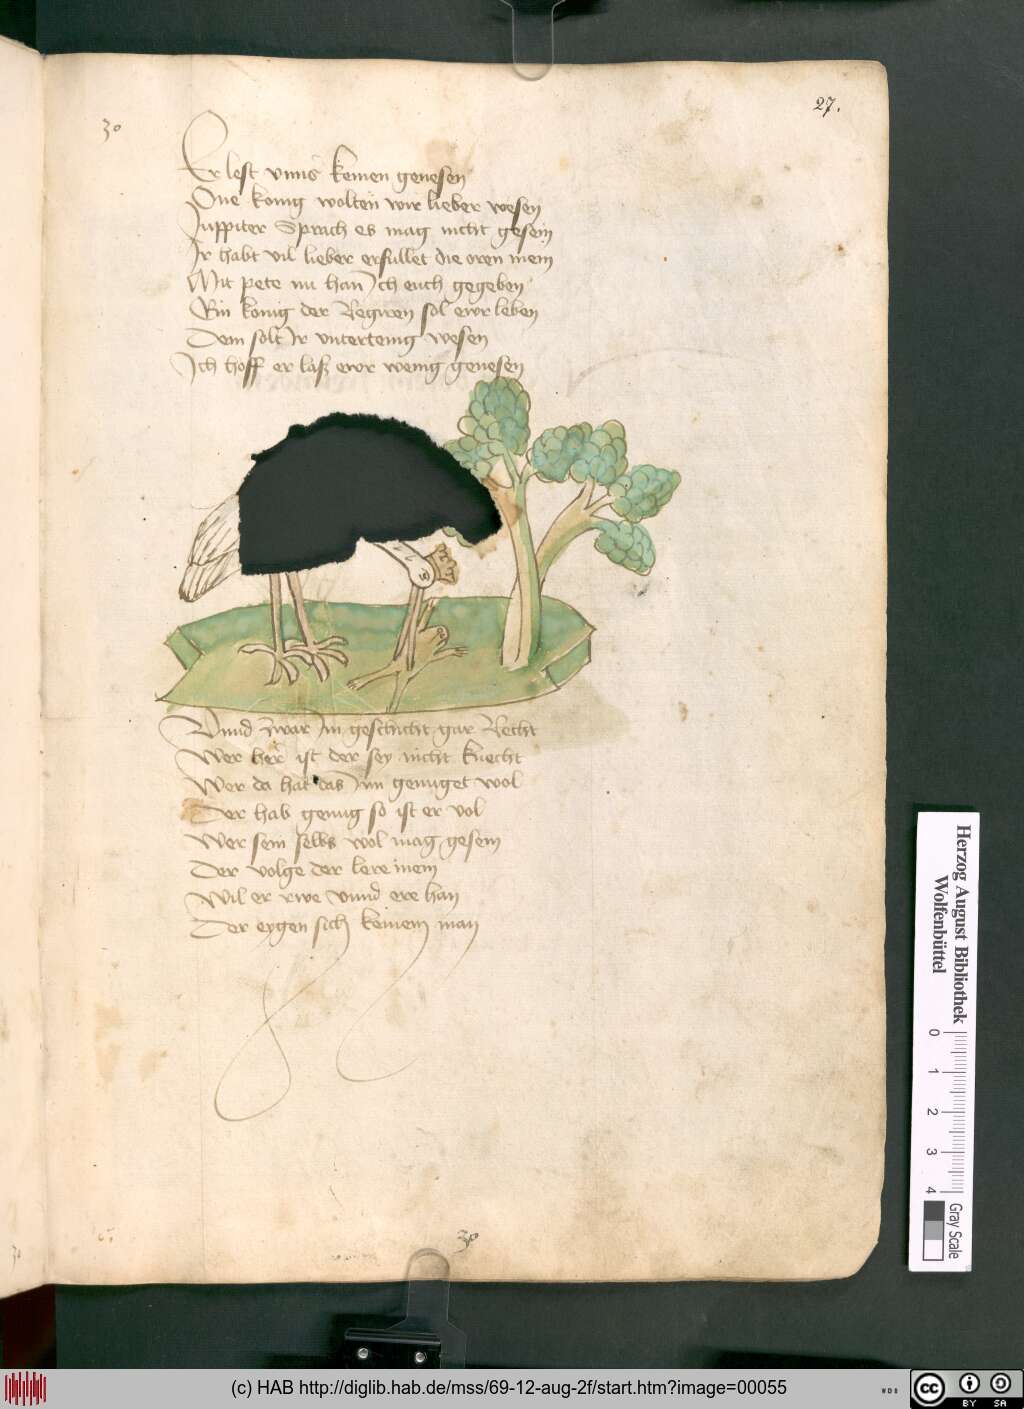 27.
30
Er lest vnns keinen genesen
One konig wolten wir lieber wesen
Juppiter Sprach es mag nicht gesein
Ir habt vil lieber erfullet die oren mein
Mit pete nu han Ich euch gegeben
Ein konig der Regiren sol ewr leben
Dem solt Ir vntertenig wesen
Ich hoff er laß ewr wenig genesen
Vnnd zwar Im geschicht gar Recht
Wer her ist der sey nicht knecht
Wer da hat das Im genuget wol
Der hab genug so ist er vol
Wer sein selbs wol mag gesein
Der volge der lere mein
Wil er rwe vnnd ere han
Der eygen sich keinem man
30
Herzog August Bibliothek
Wolfenbüttel
0 1 2 3 4
Gray Scale
(c) HAB http://diglib.hab.de/mss/69-12-aug-2f/start.htm?image=00055
WDB
cc
BY SA